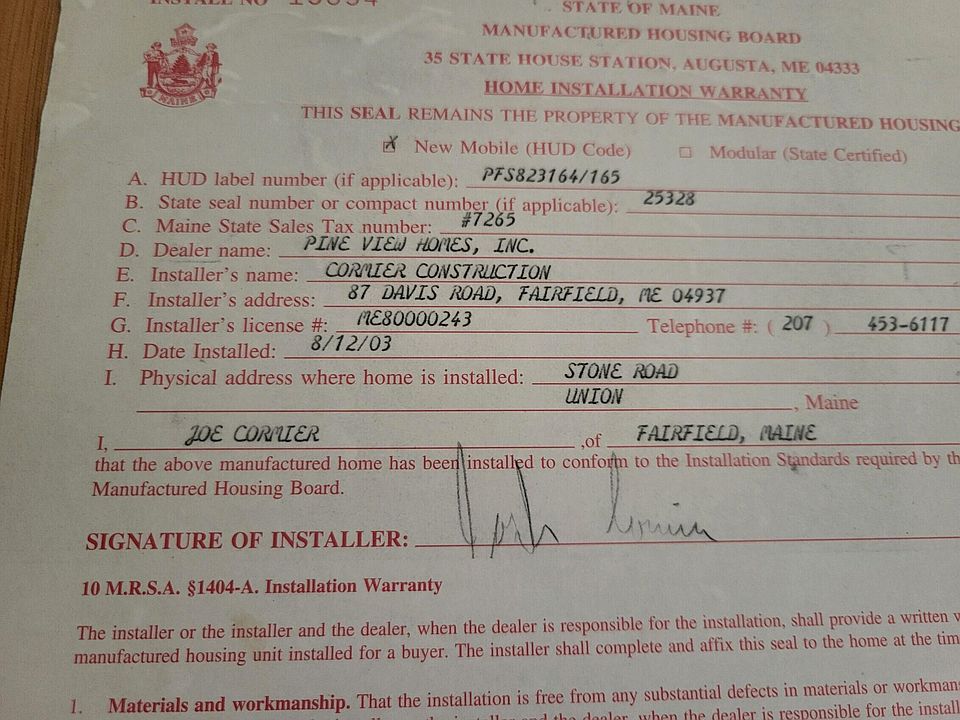 INSTALL NO
STATE OF MAINE
MANUFACTURED HOUSING BOARD
35 STATE HOUSE STATION, AUGUSTA, ME 04333
HOME INSTALLATION WARRANTY
THIS SEAL REMAINS THE PROPERTY OF THE MANUFACTURED HOUSING
MAINE
X New Mobile (HUD Code) □ Modular (State Certified)
A. HUD label number (if applicable): PFS823164/165
B. State seal number or compact number (if applicable): 25328
C. Maine State Sales Tax number: #7265
D. Dealer name: PINE VIEW HOMES, INC.
E. Installer's name: CORMIER CONSTRUCTION
F. Installer's address: 87 DAVIS ROAD, FAIRFIELD, ME 04937
G. Installer's license #: ME80000243 Telephone #: (207) 453-6117
H. Date Installed: 8/12/03
I. Physical address where home is installed: STONE ROAD
UNION, Maine
I, JOE CORMIER, of FAIRFIELD, MAINE
that the above manufactured home has been installed to conform to the Installation Standards required by
Manufactured Housing Board.
SIGNATURE OF INSTALLER:
10 M.R.S.A. §1404-A. Installation Warranty
The installer or the installer and the dealer, when the dealer is responsible for the installation, shall provide a written
manufactured housing unit installed for a buyer. The installer shall complete and affix this seal to the home at the
1. Materials and workmanship. That the installation is free from any substantial defects in materials or
the dealer, when the dealer is responsible for the